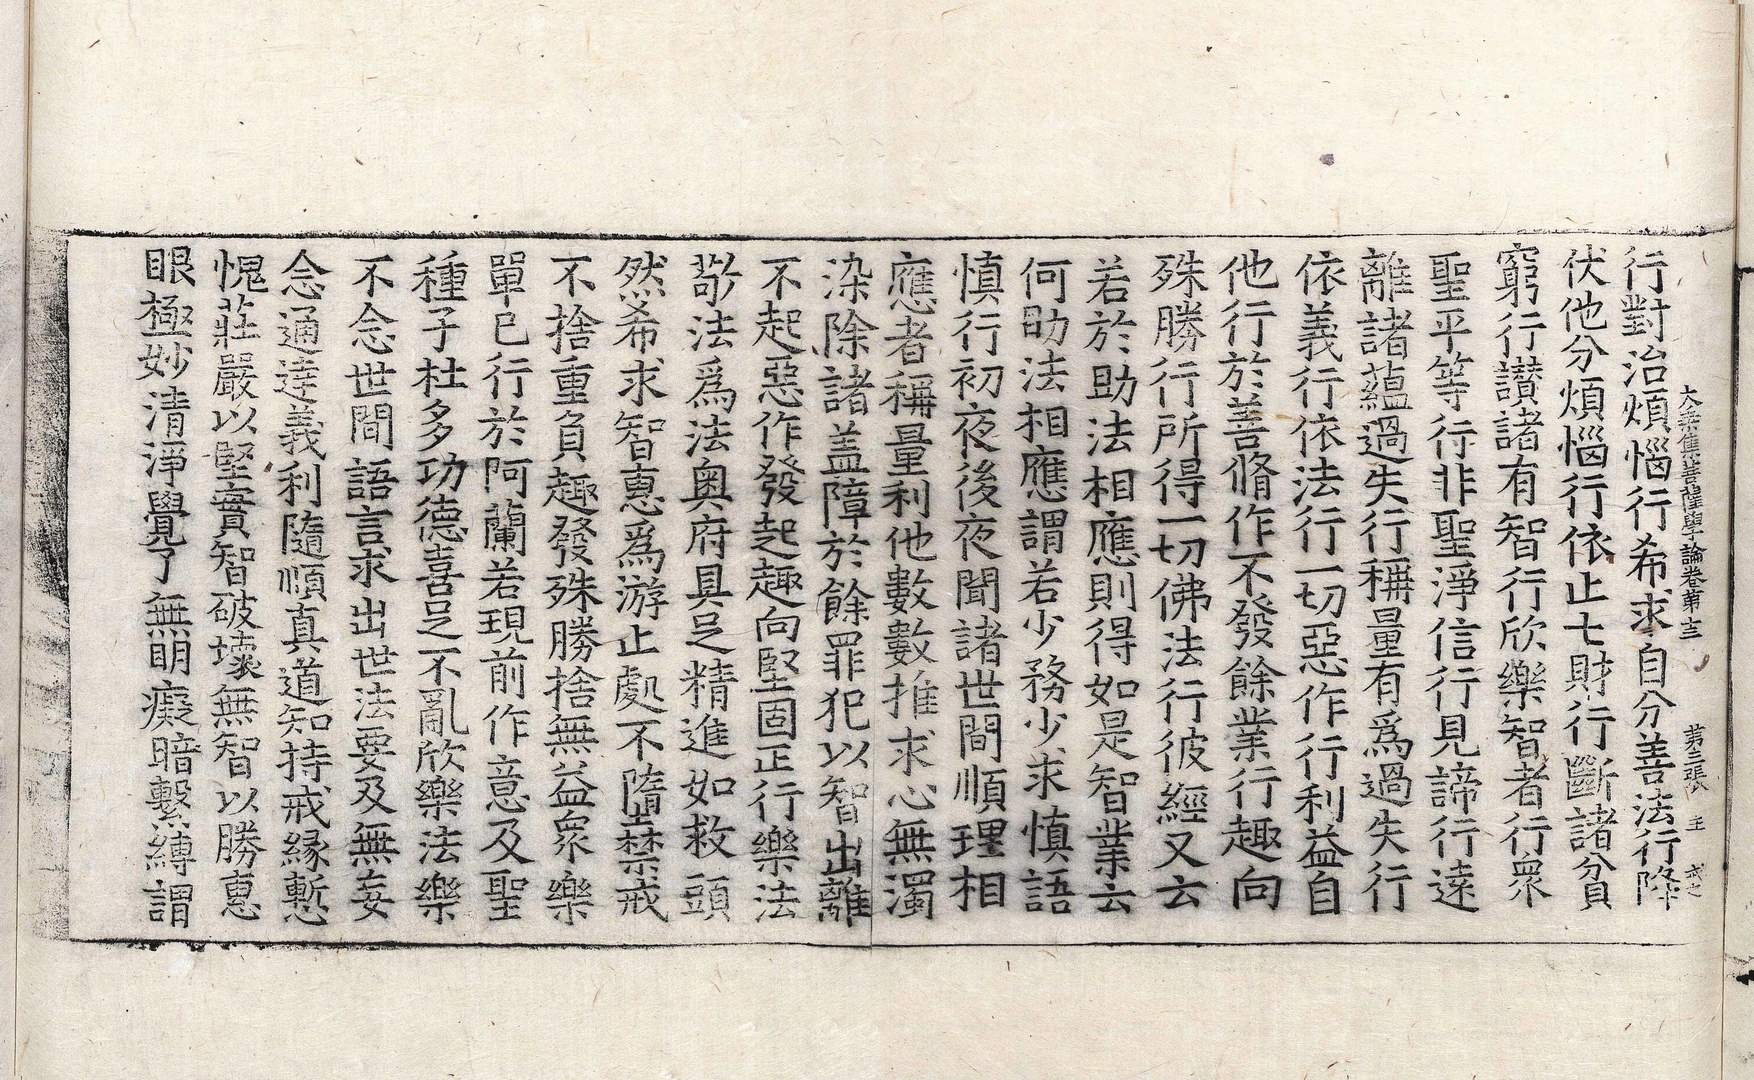 大乘集菩薩學論卷第十三 第三張 主
行對治煩惱行希求自分善法行降
伏他分煩惱行依止七財行斷諸貧
窮行讚諸有智行欣樂智者行衆
聖平等行非聖淨信行見諦行遠
離諸蘊過失行稱量有爲過失行
依義行依法行一切惡作行利益自
他行於善脩作不發餘業行趣向
殊勝行所得一切佛法行彼經又云
若於助法相應則得如是智業云
何助法相應謂若少務少求慎語
慎行初夜後夜聞諸世間順理相
應者稱量利他數數推求心無濁
染除諸盖障於餘罪犯以智出離
不起惡作發起趣向堅固正行樂法
敬法爲法奥府具足精進如救頭
然希求智惠爲游止處不隳禁戒
不捨重負趣發殊勝捨無益衆樂
單已行於阿蘭若現前作意及聖
種子杜多功德喜足不亂欣樂法樂
不念世間語言求出世法要及無妄
念通達義利隨順真道知持戒緣慙
愧莊嚴以堅實智破壞無智以勝惠
眼極妙清淨覺了無明癡暗繫縛謂